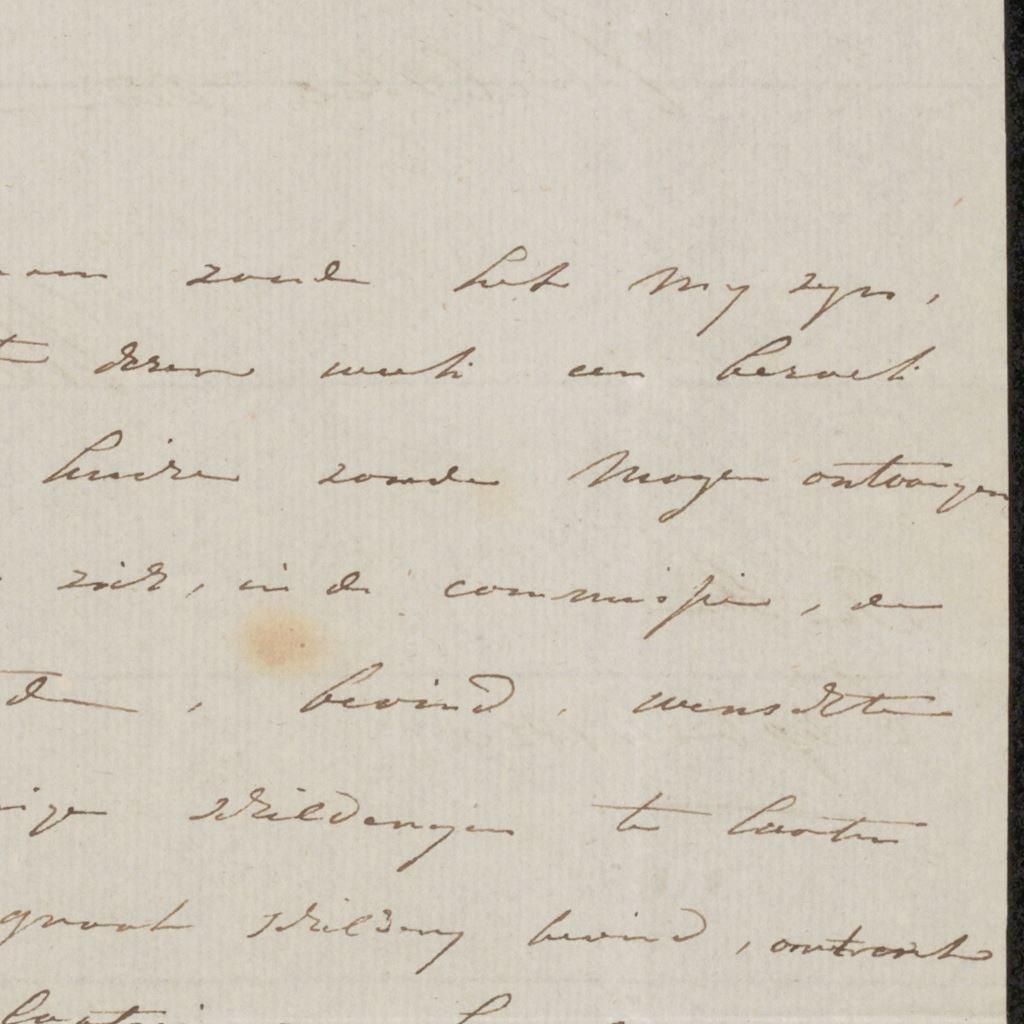 zoude het my zyn,
deser week een bezoek
huize zoude mogen ontvangen
zich, in de commissie, de
bevind, wenschte
schilderyen te laaten
groot schildery bevind, omtrent